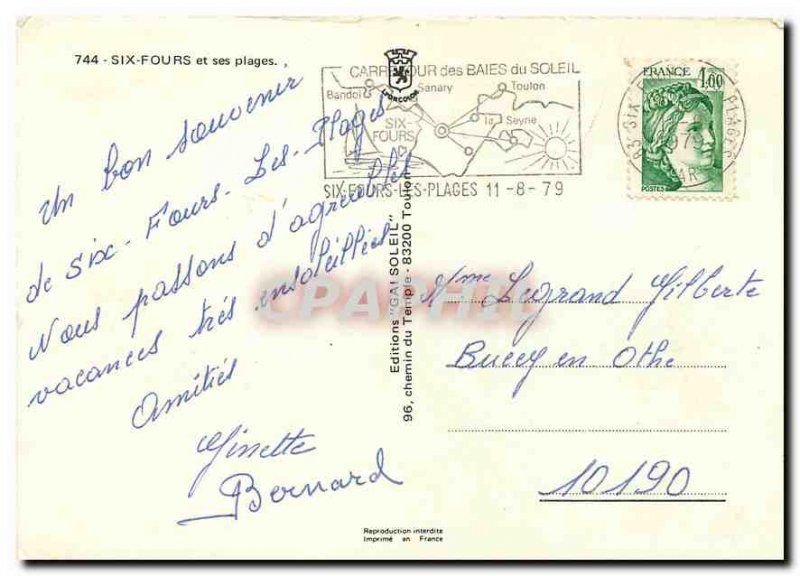 744 - SIX-FOURS et ses plages.
Un bon souvenir
de Six-Fours-Les-Plages
Nous passons d'agreables
vacances très ensoleillées
Amitiés
Ginette
Bernard
CARREFOUR des BAIES du SOLEIL
Bandol
Sanary
Toulon
SIX-
FOURS
la Seyne
SIX-FOURS-LES-PLAGES 11-8-79
LYONCOLOR
FRANCE 1,00
POSTES
83 SIX FOURS PLAGES
1979
VAR
Editions "GAI SOLEIL"
96, chemin du Temple - 83200 Toulon
CPAPHIL
Mme Legrand Gilberte
Bucey en Othe
10190
Reproduction interdite
Imprimé en France